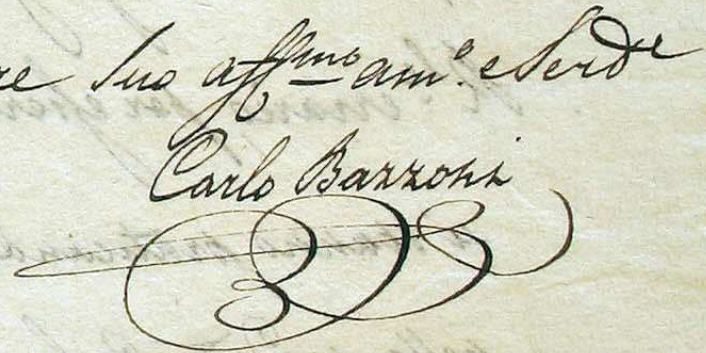 re Suo affmo amo. e Serdre
Carlo Bazzoni